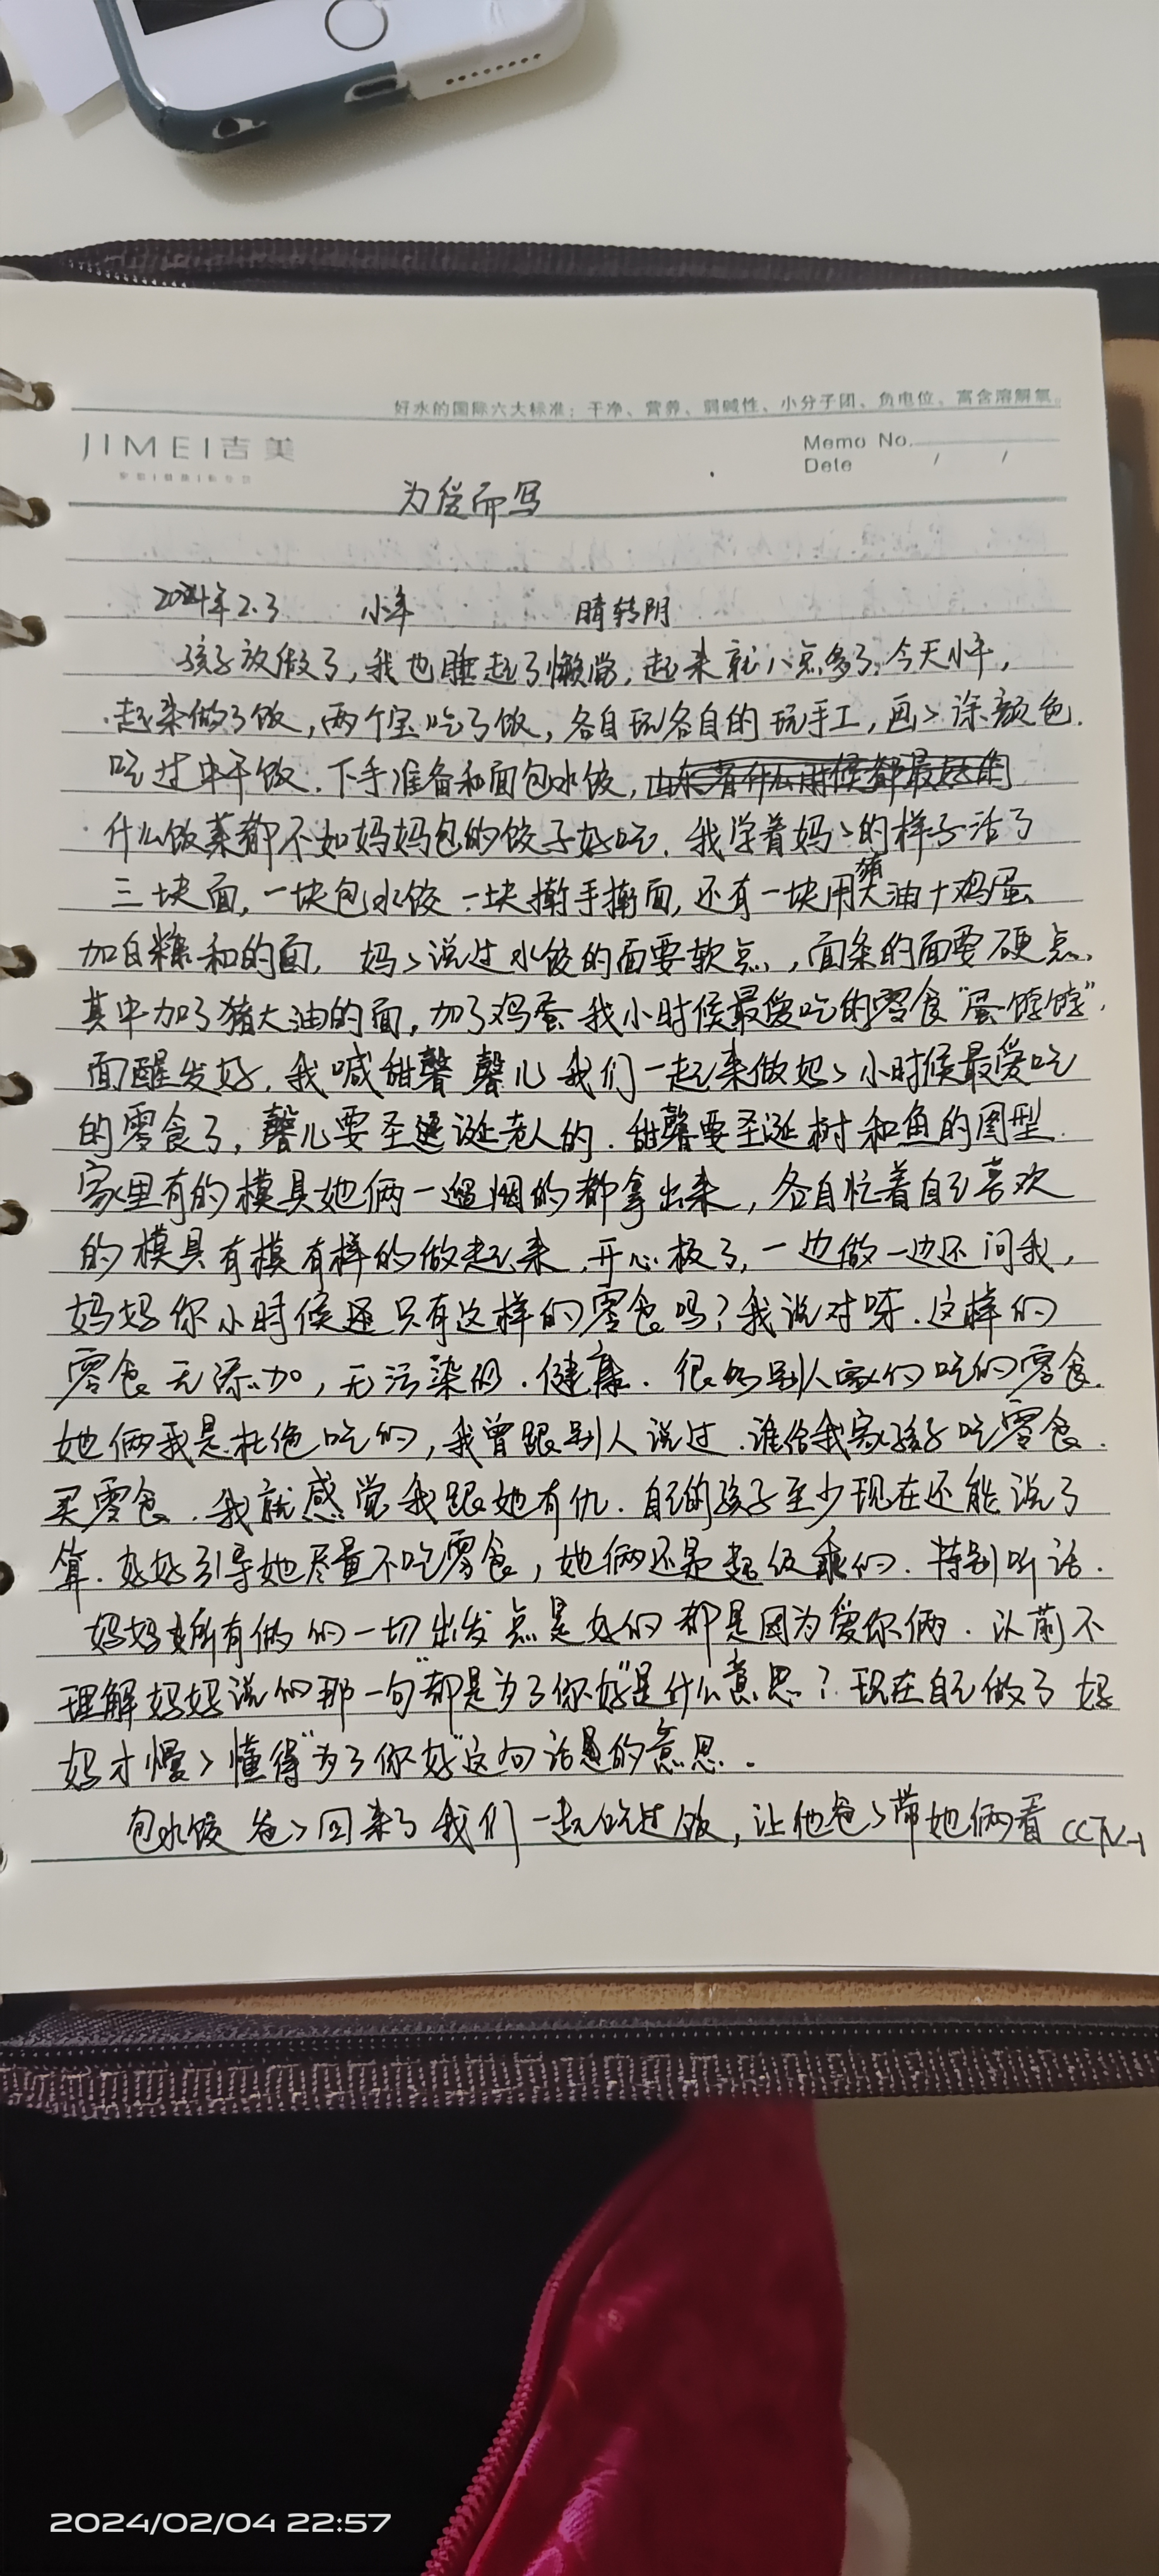 好水的国际六大标准：干净、营养、弱碱性、小分子团、负电位、富含溶解氧。
JIMEI吉美
Memo No.
Date / /
为爱而写
2024年2.3 小年 晴转阴
孩子放假了，我也睡起了懒觉，起来就八点多了，今天小年，
起来做了饭，两个宝吃了饭，各自玩各自的 玩手工，画々涂颜色.
吃过中午饭.下手准备和面包水饺，山东省什么时候都最
什么饭菜都不如妈妈包的饺子好吃.我学着妈々的样子活了
三块面，一块包水饺 一块擀手擀面，还有一块用猪大油+鸡蛋
加白糖和的面，妈々说过水饺的面要软点，面条的面要硬点，
其中加了猪大油的面，加了鸡蛋 我小时候最爱吃的零食"蛋饽饽".
面醒发好，我喊甜馨 馨儿 我们一起来做妈々小时候最爱吃
的零食了，馨儿要圣诞老人的.甜馨要圣诞树和鱼的图型.
家里有的模具她俩一遛烟的都拿出来，各自忙着自己喜欢
的模具有模有样的做起来，开心极了，一边做一边还问我，
妈妈你小时候还只有这样的零食吗？我说对呀.这样的
零食 无添加，无污染的.健康.很多别人家们吃的零食.
她俩我是杜绝吃的，我曾跟别人说过.谁给我家孩子吃零食.
买零食.我就感觉我跟她有仇.自己的孩子至少现在还能说了
算.好好引导她尽量不吃零食，她俩还是超级乖的.特别听话.
妈妈所有做的一切出发点是好的 都是因为爱你俩.以前不
理解妈妈说的那一句"都是为了你好"是什么意思？现在自己做了妈
妈才慢々懂得"为了你好"这句话是的意思.
包水饺 爸々回来了我们一起吃过饭，让他爸々带她俩看CCTV-1
2024/02/04 22:57